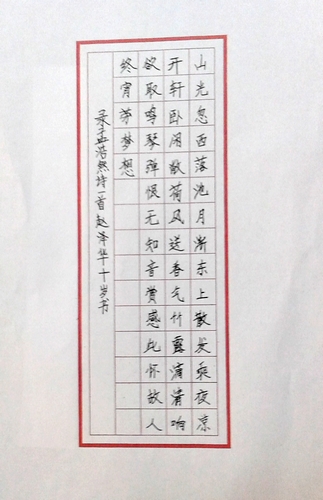 山光忽西落池月渐东上散发乘夜凉
开轩卧闲敞荷风送香气竹露滴清响
欲取鸣琴弹恨无知音赏感此怀故人
终宵劳梦想
录孟浩然诗一首 赵泽华十岁书